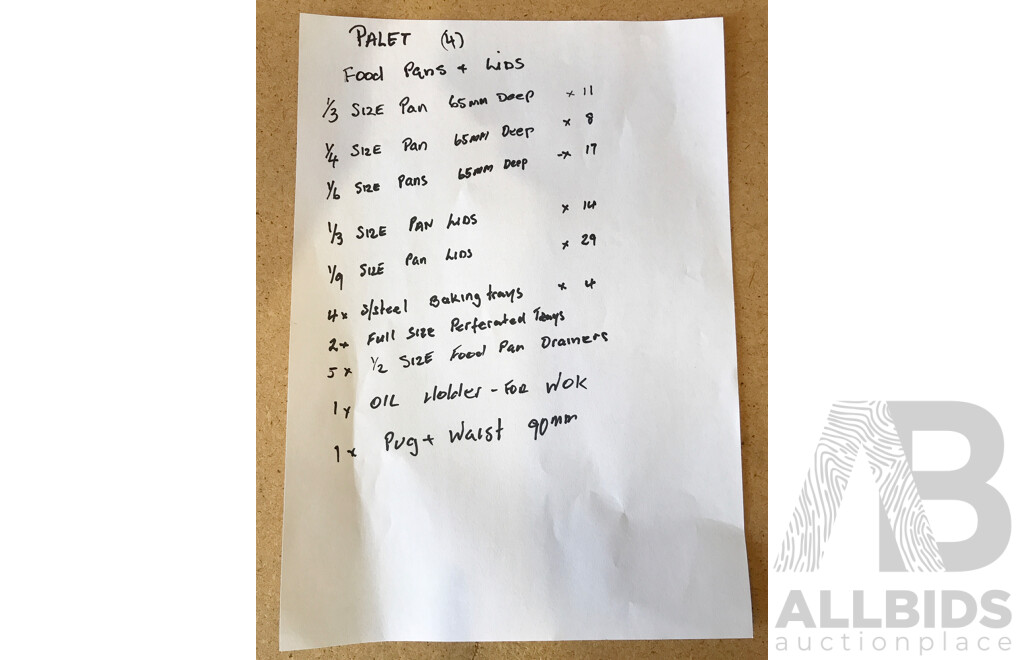 PALET (4)
Food Pans + LIDS
1/3 SIZE Pan 65mm Deep x 11
1/4 SIZE Pan 65mm Deep x 8
1/6 SIZE Pans 65mm Deep -x 17
1/3 SIZE PAN LIDS x 14
1/9 SIZE Pan LIDS x 29
4x S/steel Baking trays x 4
2x Full SIZE Perferated Trays
5 x 1/2 SIZE Food Pan Drainers
1x OIL Holder - FOR WOK
1x Pug + Waist 90mm
AB
ALLBIDS
auctionplace